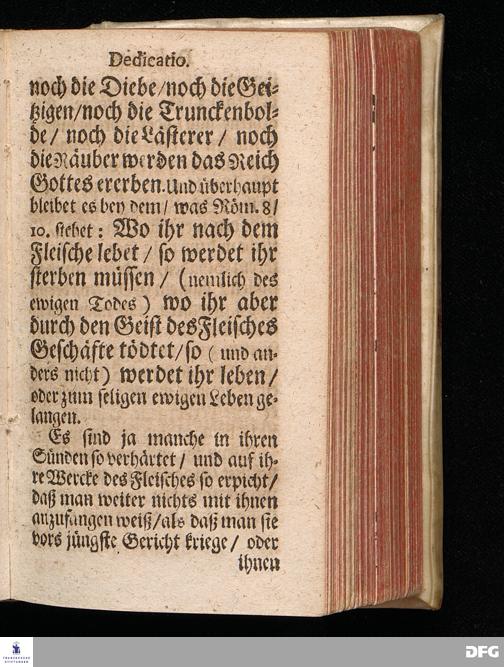 Dedicatio.
noch die Diebe/noch die Gei-
tzigen/noch die Trunckenbol-
de/ noch die Lästerer/ noch
die Räuber werden das Reich
Gottes ererben. Und überhaupt
bleibet es bey dem/ was Röm. 8/
10. stehet: Wo ihr nach dem
Fleische lebet/ so werdet ihr
sterben müssen/ (nemlich des
ewigen Todes) wo ihr aber
durch den Geist des Fleisches
Geschäfte tödtet/so (und an-
ders nicht) werdet ihr leben/
oder zum seligen ewigen Leben ge-
langen.
Es sind ja manche in ihren
Sünden so verhärtet/ und auf ih-
re Wercke des Fleisches so erpicht/
daß man weiter nichts mit ihnen
anzufangen weiß/als daß man sie
vors jüngste Gericht kriege/ oder
ihnen
FRANCKESCHE
STIFTUNGEN
DFG